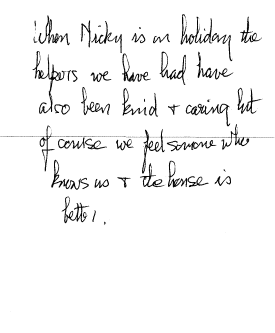 When Nicky is on holiday the
helpers we have had have
also been kind + caring but
of course we feel someone who
knows us + the house is
better.